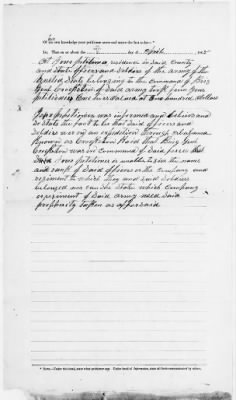 Of his own knowledge your petitioner avers and states the fact to be : *
(1). That on or about the day of April 186
At your petitioners residence in said County
and State officers and soldiers of the army of the
United States belonging to the command of Brig
Genl Croxton of said army took from your
petitioner One mule valued at One hundred dollars
Your petitioner was informed and believes and
so states the fact to be that said officers and
soldiers was on an expedition through Alabama
known as Croxton Raid that Brig Genl
Croxton was in command of said forces that
your petitioner is unable to give the name
and rank of said officers or the company and
regiment to which they and said soldiers
belonged nor can he state which company
or regiment of said army used said
property taken as aforesaid
* NOTE.—Under this head, state what petitioner says. Under head of Information, state all facts communicated by others.